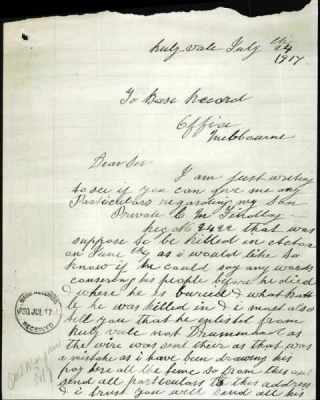 July 24
1917
To Base Record
Office
Melbourne
Dear Sir
I am just writing
to see if you can give me any
Particulars regarding my Son
Private C M
No 2422 that was
suppose to be killed in action
on June as i would like to
know if he could say any words
conserning his people before he died
& where he is buried & what batt
le he was killed in & i must also
tell you that he enlisted from
vale not
the wire was sent their as that was
a mistake as i have been drawing his
pay here all the time so from this
send all particulars to this address
& i trust you will send all his
BASE RECORDS
30 JUL 17
RECEIVED